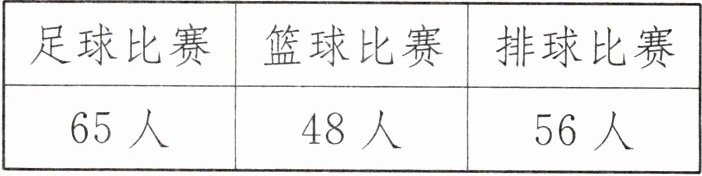 足球比赛 篮球比赛 排球比赛
65人 48人 56人